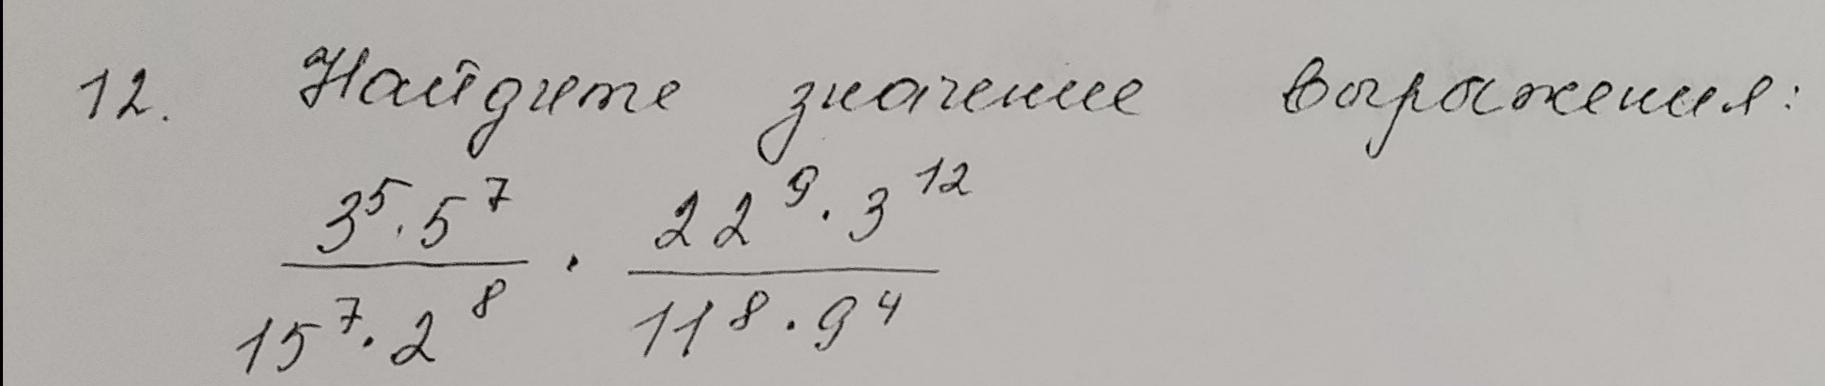 12. Найдите значение выражения:
\frac{3^5 \cdot 5^7}{15^7 \cdot 2^8} \cdot \frac{22^9 \cdot 3^{12}}{11^8 \cdot 9^4}